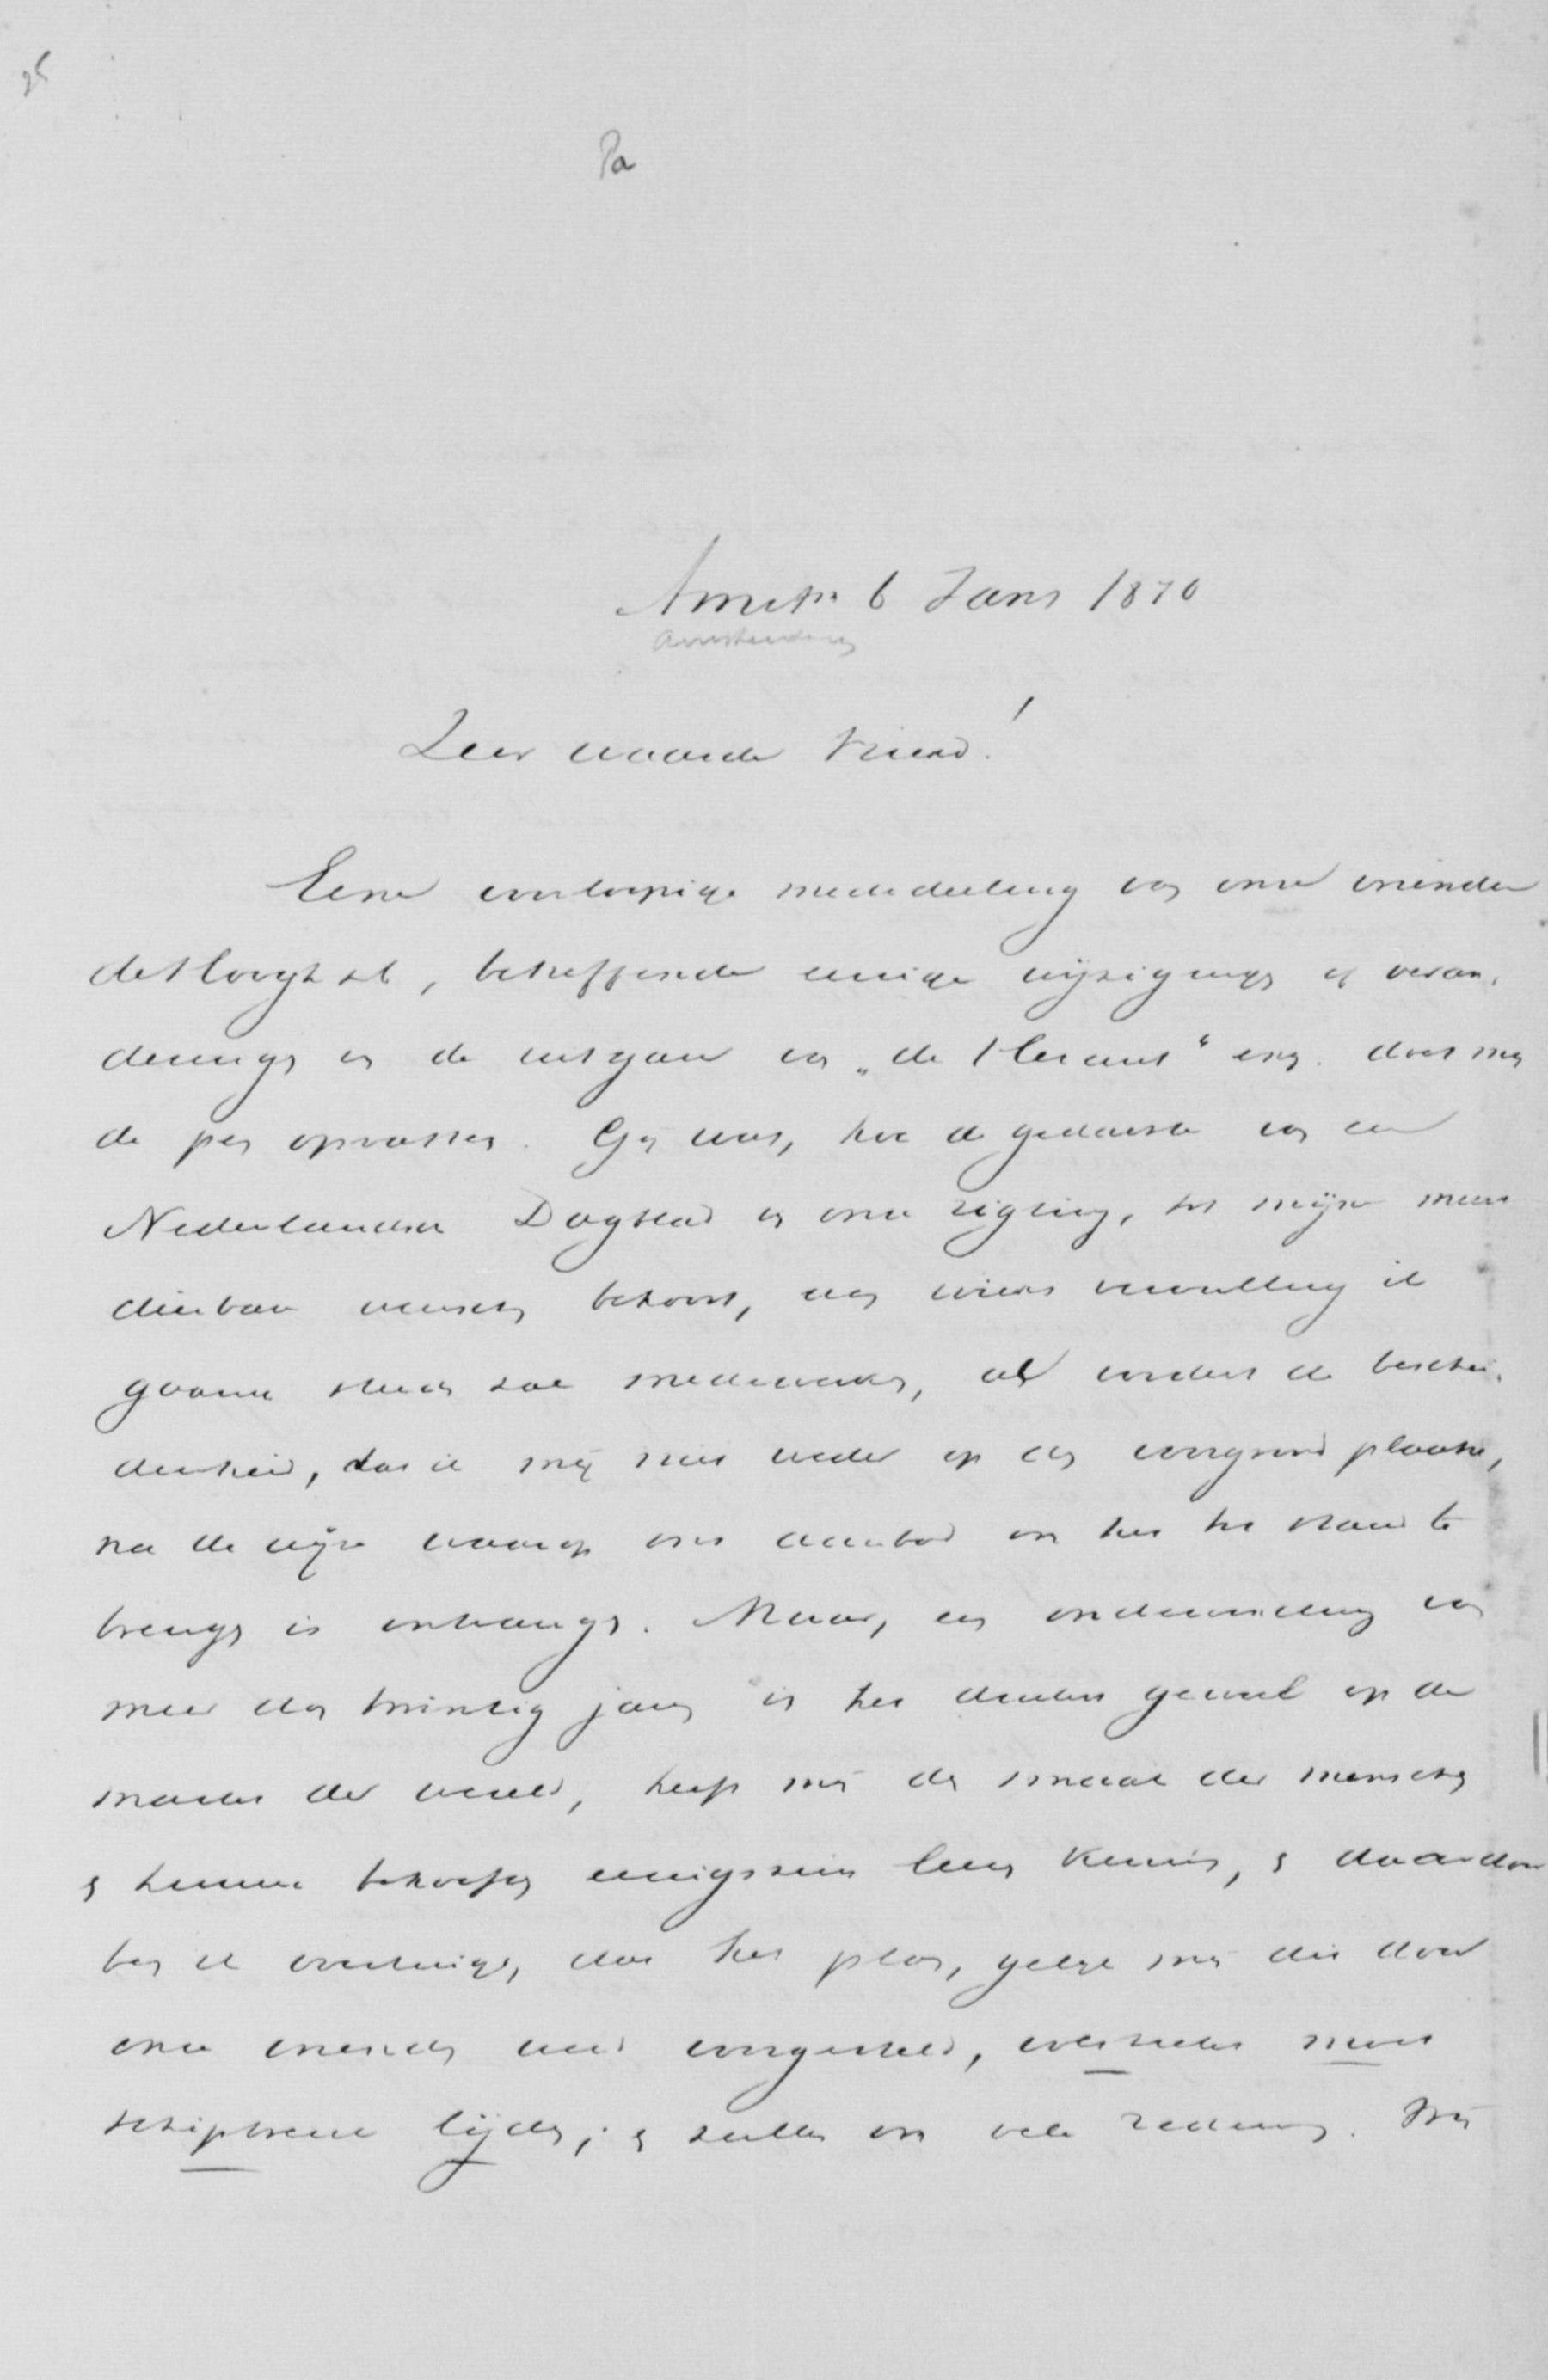 Pa
Amstm 6 Jany 1870
Amsterdam
Zeer waarde Vriend!
Eene voorloopige mededeeling van onze vrienden
de Hoogh &c, betreffende eenige wijzigingen of veran-
deringen in de uitgave van „de Heraut" enz. doet mij
de pen opvatten. Gij weet, hoe de gedachte van een
Nederlandsch Dagblad in onze rigting, tot mijne meest
dierbare wenschen behoort, aan wiens vervulling ik
gaarne steeds zal medewerken, al vordert de beschei-
denheid, dat ik mij niet weder op den voorgrond plaatse,
na de wijze waarop ons aanbod om het tot stand te
brengen is ontvangen. Maar, een ondervinding van
meer dan twintig jaren in het drukke gewoel op de
markt der wereld, heeft mij den smaak der menschen
& hunne behoeften eenigszins leeren kennen, & daardoor
ben ik overtuigd, dat het plan, gelijk mij dit door
onze vrienden werd voorgesteld, volstrekt moet
schipbreuk lijden; & zulks om vele redenen. Mij